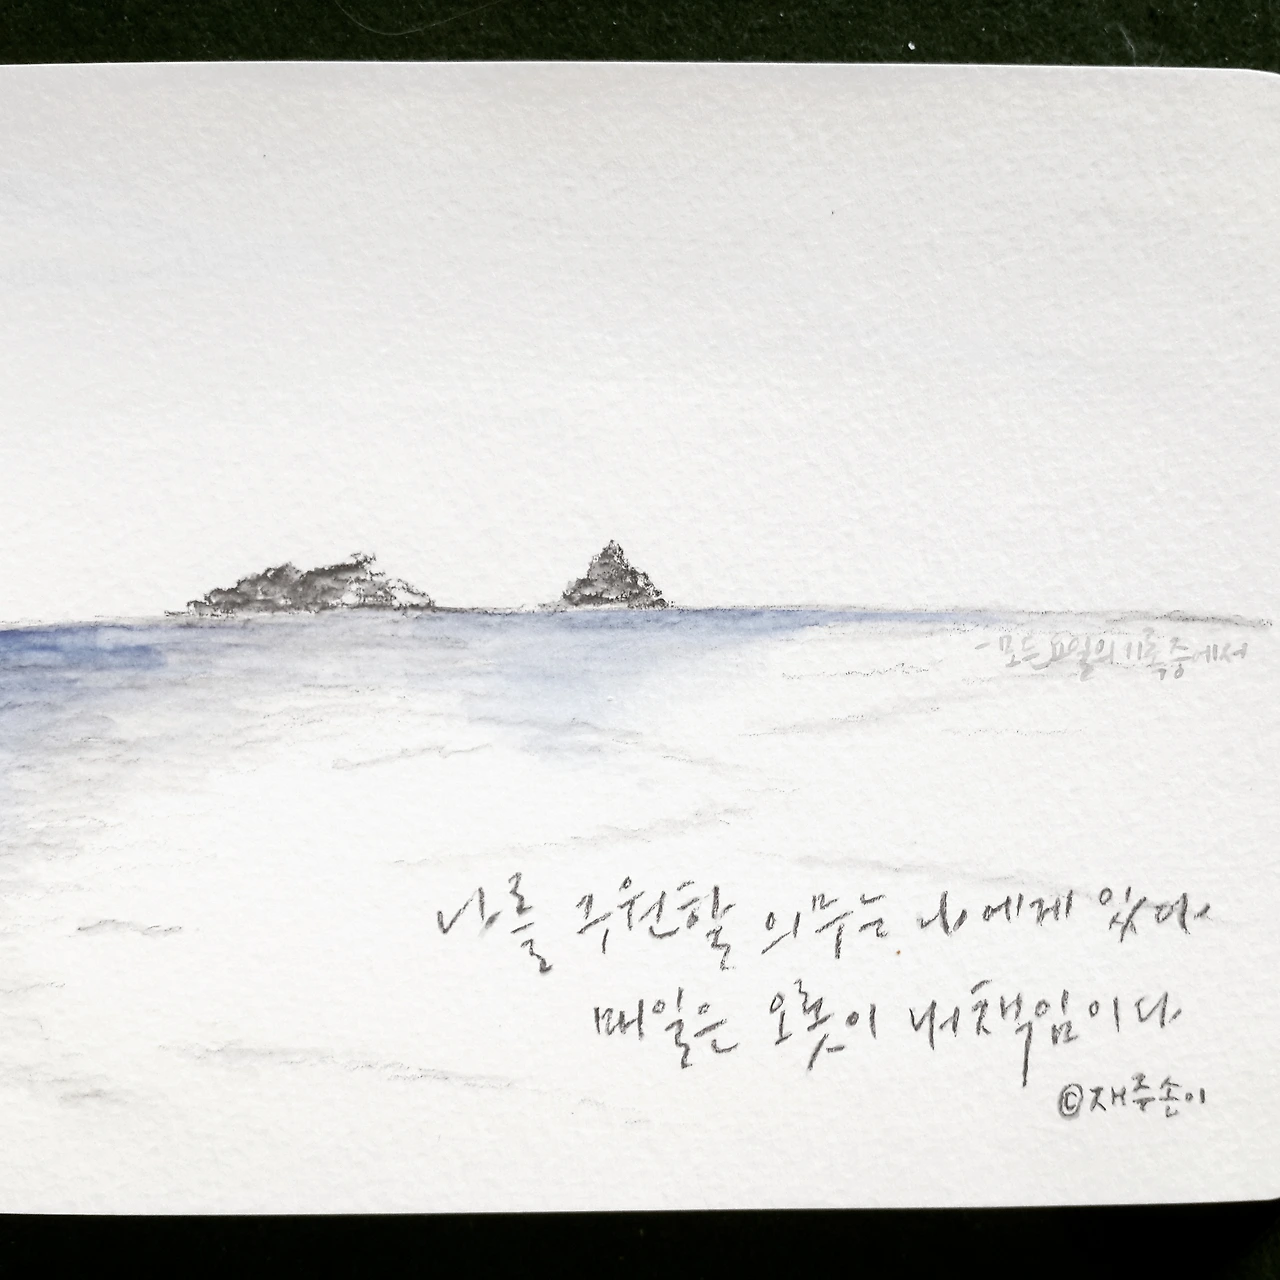 - 모든 요일의 기록 중에서
나를 구원할 의무는 나에게 있다.
매일은 오롯이 내 책임이다.
©재주손이